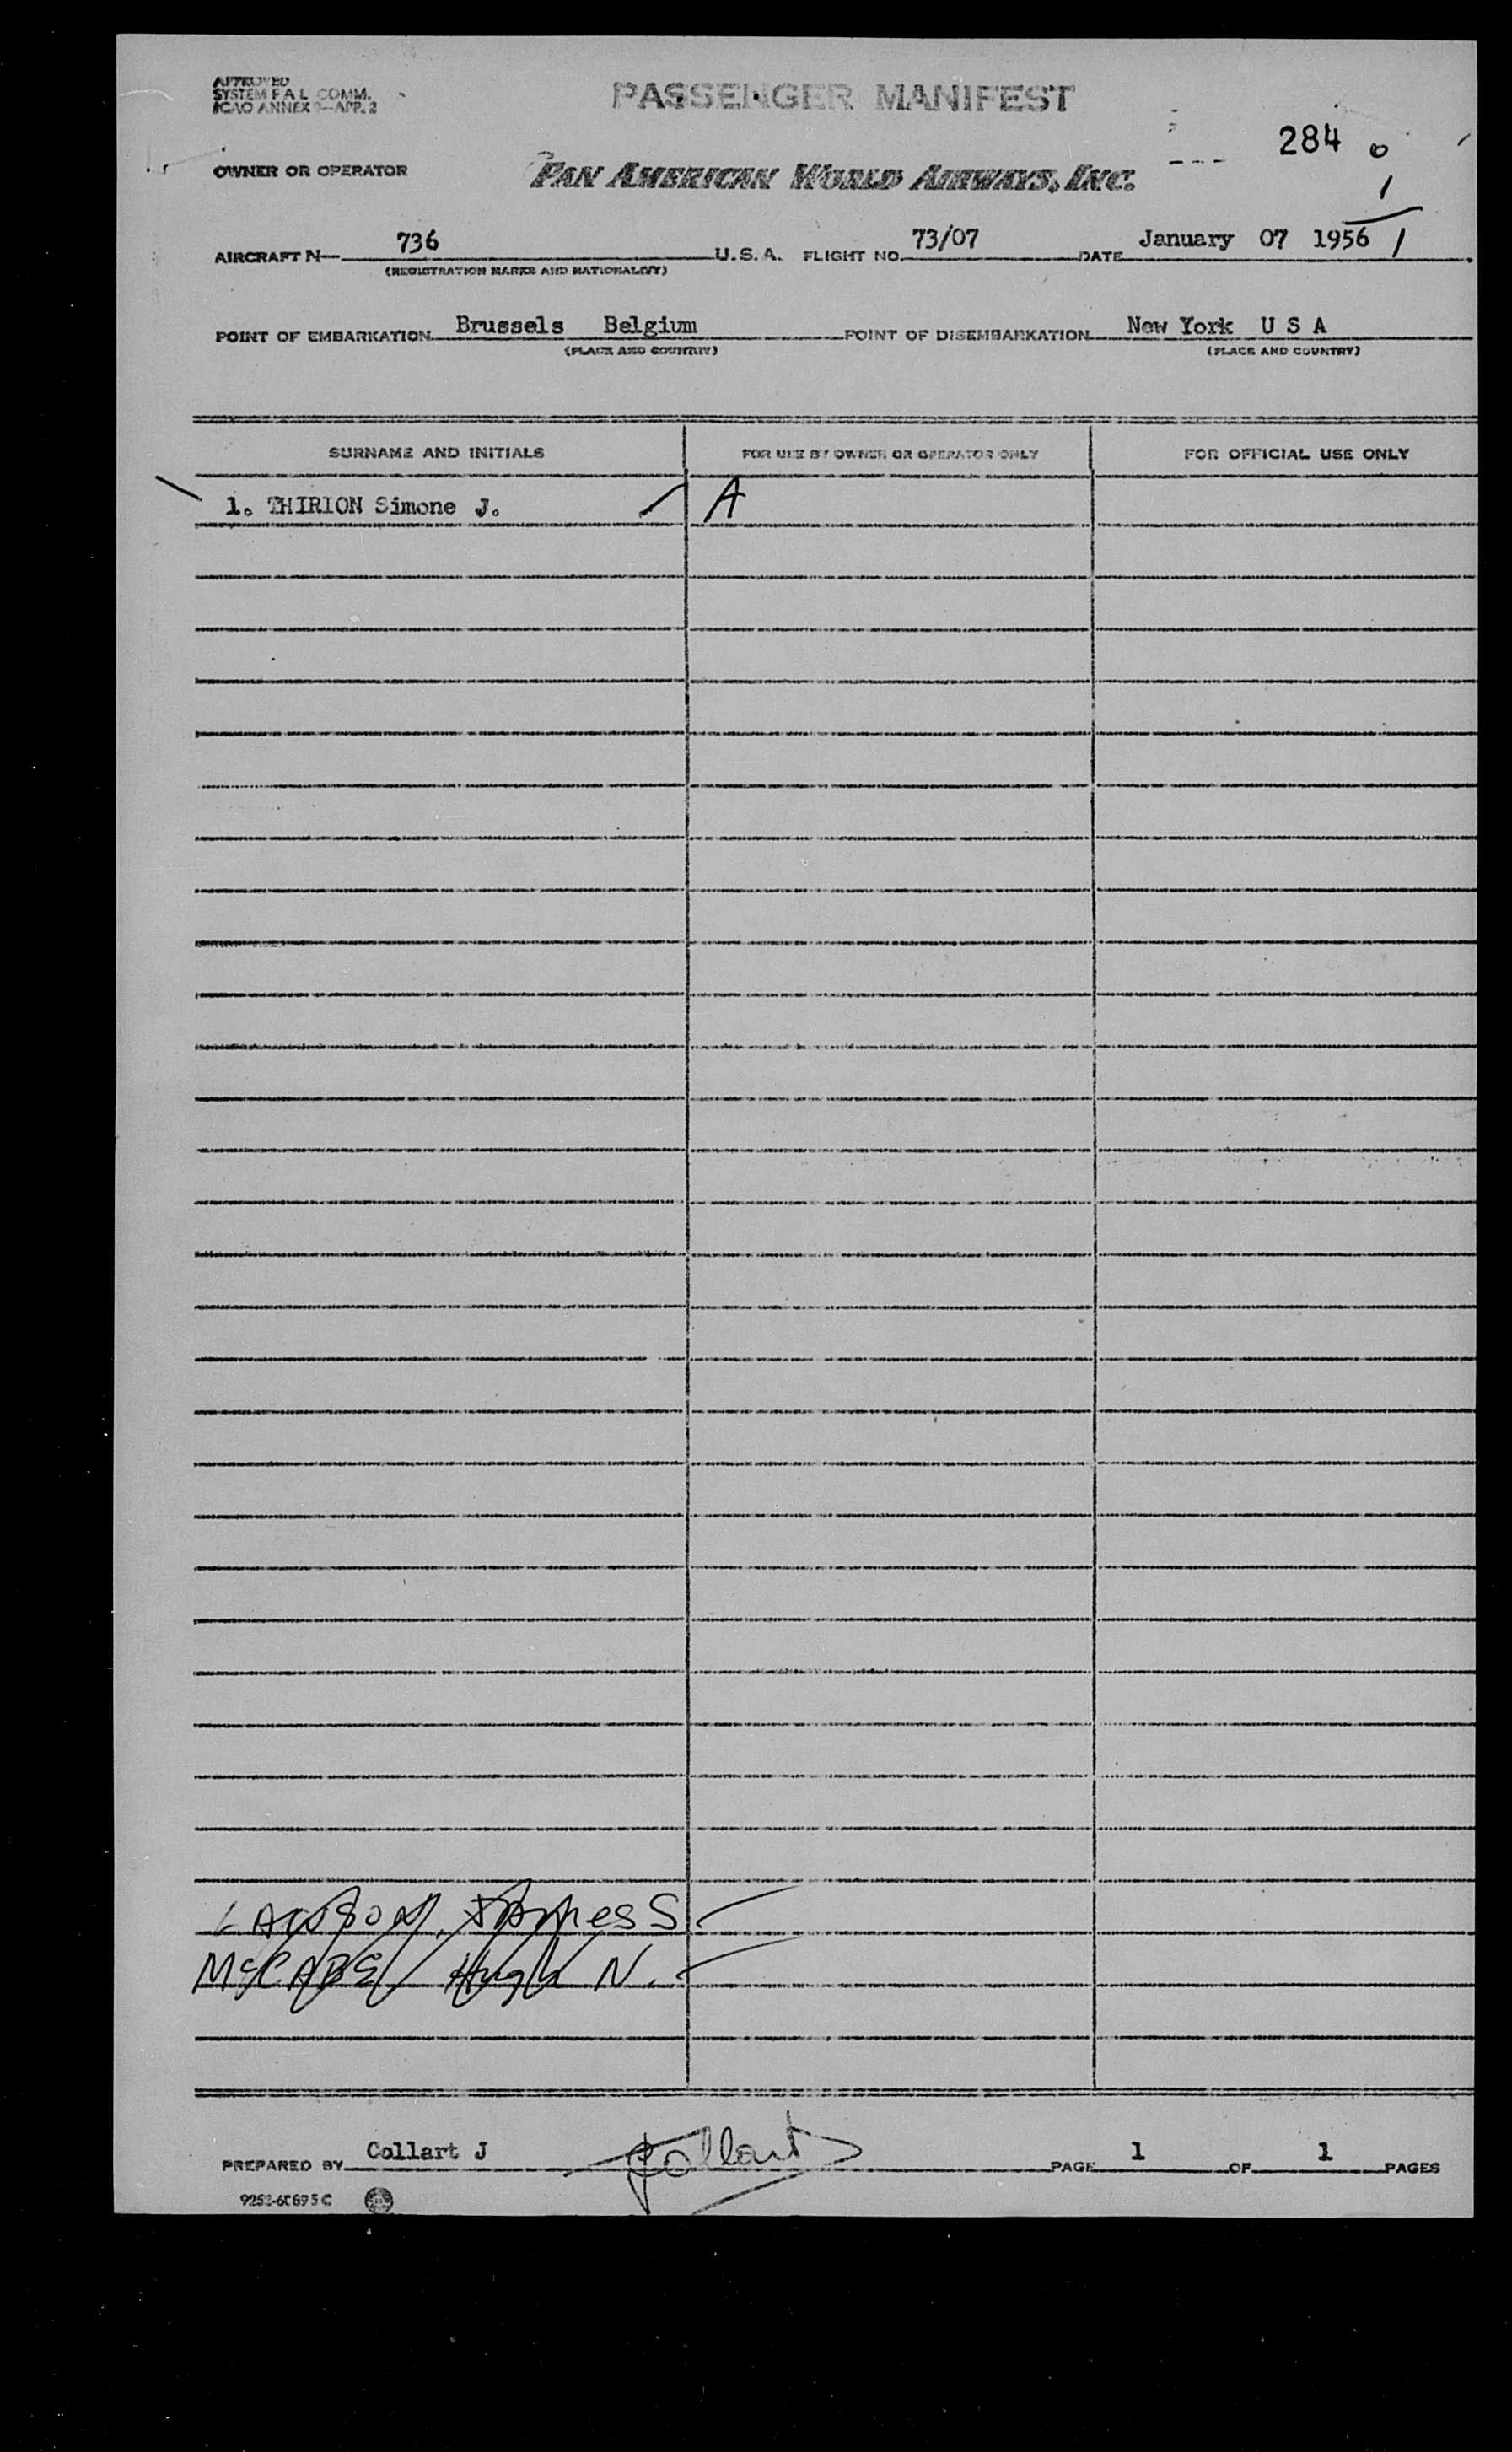 APPROVED
SYSTEM F A L COMM.
ICAO ANNEX 9—APP. 2
PASSENGER MANIFEST
284 0
1
OWNER OR OPERATOR PAN AMERICAN WORLD AIRWAYS, INC.
AIRCRAFT N— 736 U.S.A. FLIGHT NO. 73/07 DATE January 07 1956 1
(REGISTRATION MARKS AND NATIONALITY)
POINT OF EMBARKATION Brussels Belgium POINT OF DISEMBARKATION New York U S A
(PLACE AND COUNTRY) (PLACE AND COUNTRY)
SURNAME AND INITIALS FOR USE BY OWNER OR OPERATOR ONLY FOR OFFICIAL USE ONLY
1. THIRION Simone J. A
LAWSON, James S
McCABE Hugh N.
PREPARED BY Collart J Collart PAGE 1 OF 1 PAGES